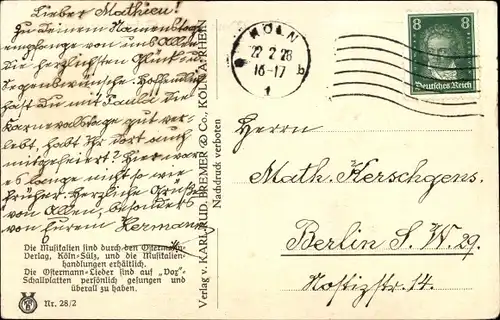 Lieber Mathieu!
Zu deinem Namenstage
empfange von uns Allen
die herzlichsten Glück und
Segenswünsche. Hoffentlich
hast Du mit Paula die
Karnevalstage gut ver-
lebt, habt Ihr dort auch
mitgefeiert? Hier war
es lange nicht so wie
früher. Herzliche Grüße
von Allen, besonders
von Eurem Hermann
Die Musikalien sind durch den Ostermann-
Verlag, Köln-Sülz, und die Musikalien-
handlungen erhältlich.
Die Ostermann-Lieder sind auf „Vox"-
Schallplatten persönlich gesungen und
überall zu haben.
Nr. 28/2
Verlag v. KARL RUD. BREMER & Co., KÖLN A. RHEIN
Nachdruck verboten
KÖLN
22 2 28
16-17
1 b
8 8
Deutsches Reich
Herrn
Math. Kerschgens.
Berlin S. W. 29.
Nostizstr. 14.